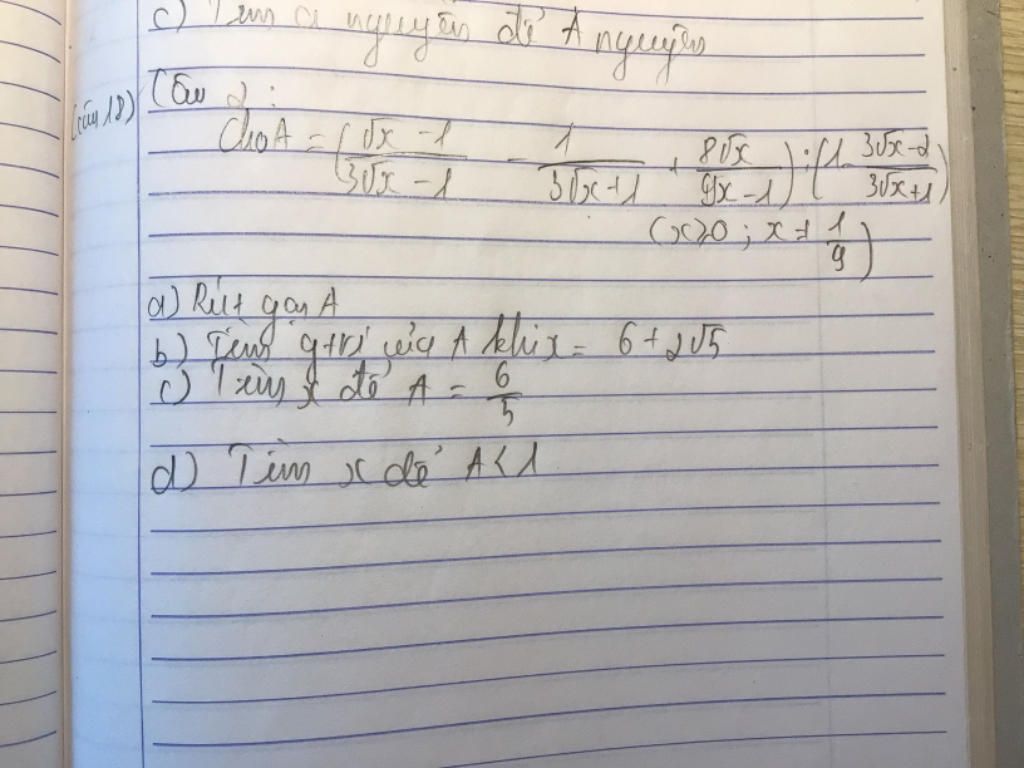 c) Tìm a nguyên để A nguyên
(câu 18)
Câu 2 :
Cho A = ( (√x - 1)/(3√x - 1) - 1/(3√x + 1) + 8√x/(9x - 1) ) : ( 1 - (3√x - 2)/(3√x + 1) )
(x ≥ 0 ; x ≠ 1/9)
a) Rút gọn A
b) Tìm gtrị của A khi x = 6 + 2√5
c) Tìm x để A = 6/5
d) Tìm x để A < 1